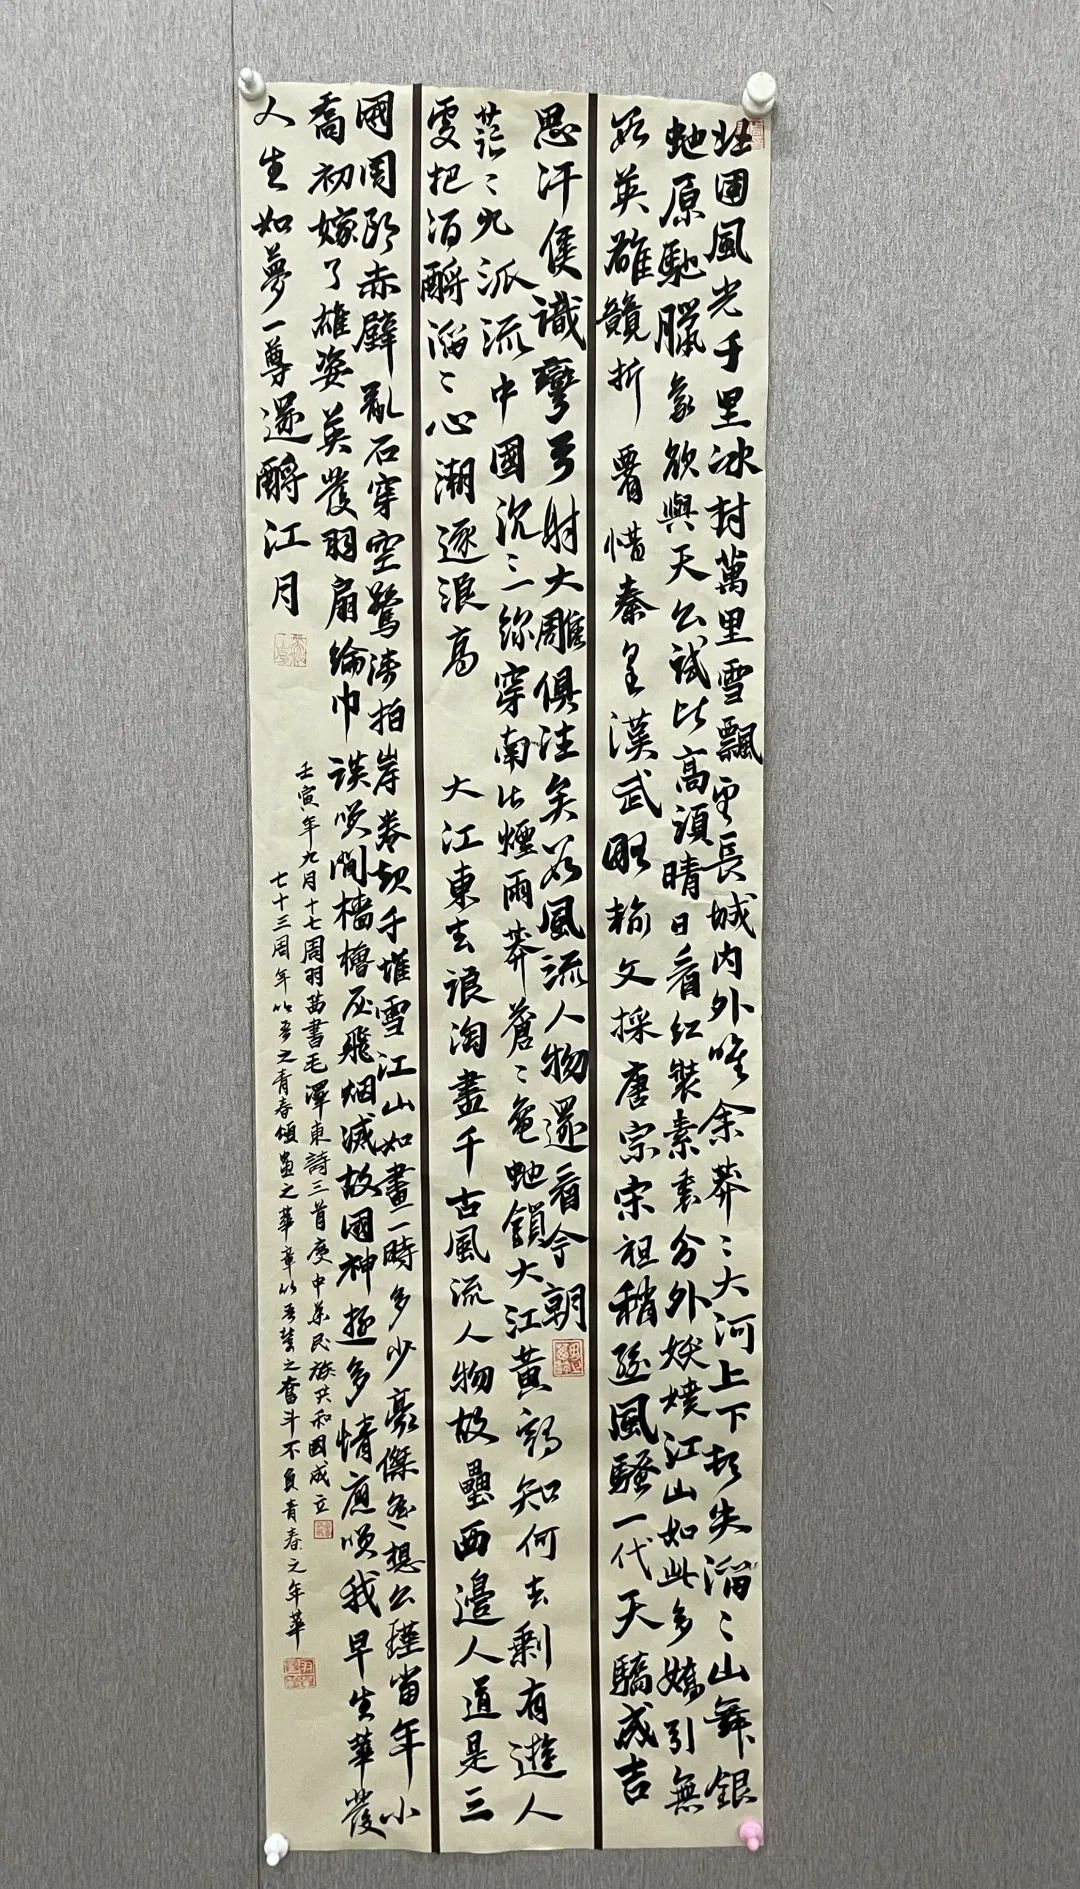 北國風光千里冰封萬里雪飄望長城内外唯余莽〻大河上下頓失滔〻山舞銀
蛇原馳臘象欲與天公試比高須晴日看紅裝素裹分外妖嬈江山如此多嬌引無
數英雄競折腰惜秦皇漢武略輸文採唐宗宋祖稍遜風騷一代天驕成吉
思汗僅識彎弓射大雕俱往矣數風流人物還看今朝
茫〻九派流中國沉〻一線穿南北煙雨莽蒼〻龜蛇鎖大江黃鶴知何去剩有遊人
處把酒酹滔〻心潮逐浪高 大江東去浪淘盡千古風流人物故壘西邊人道是三
國周郎赤壁亂石穿空驚濤拍岸卷起千堆雪江山如畫一時多少豪傑遙想公瑾當年小
喬初嫁了雄姿英發羽扇綸巾談笑間檣櫓灰飛烟滅故國神遊多情應笑我早生華發
人生如夢一尊還酹江月
壬寅年九月十七周羽茜書毛澤東詩三首慶中華民族共和國成立
七十三周年以吾之青春頌盛之華章以吾輩之奮斗不負青春之年華